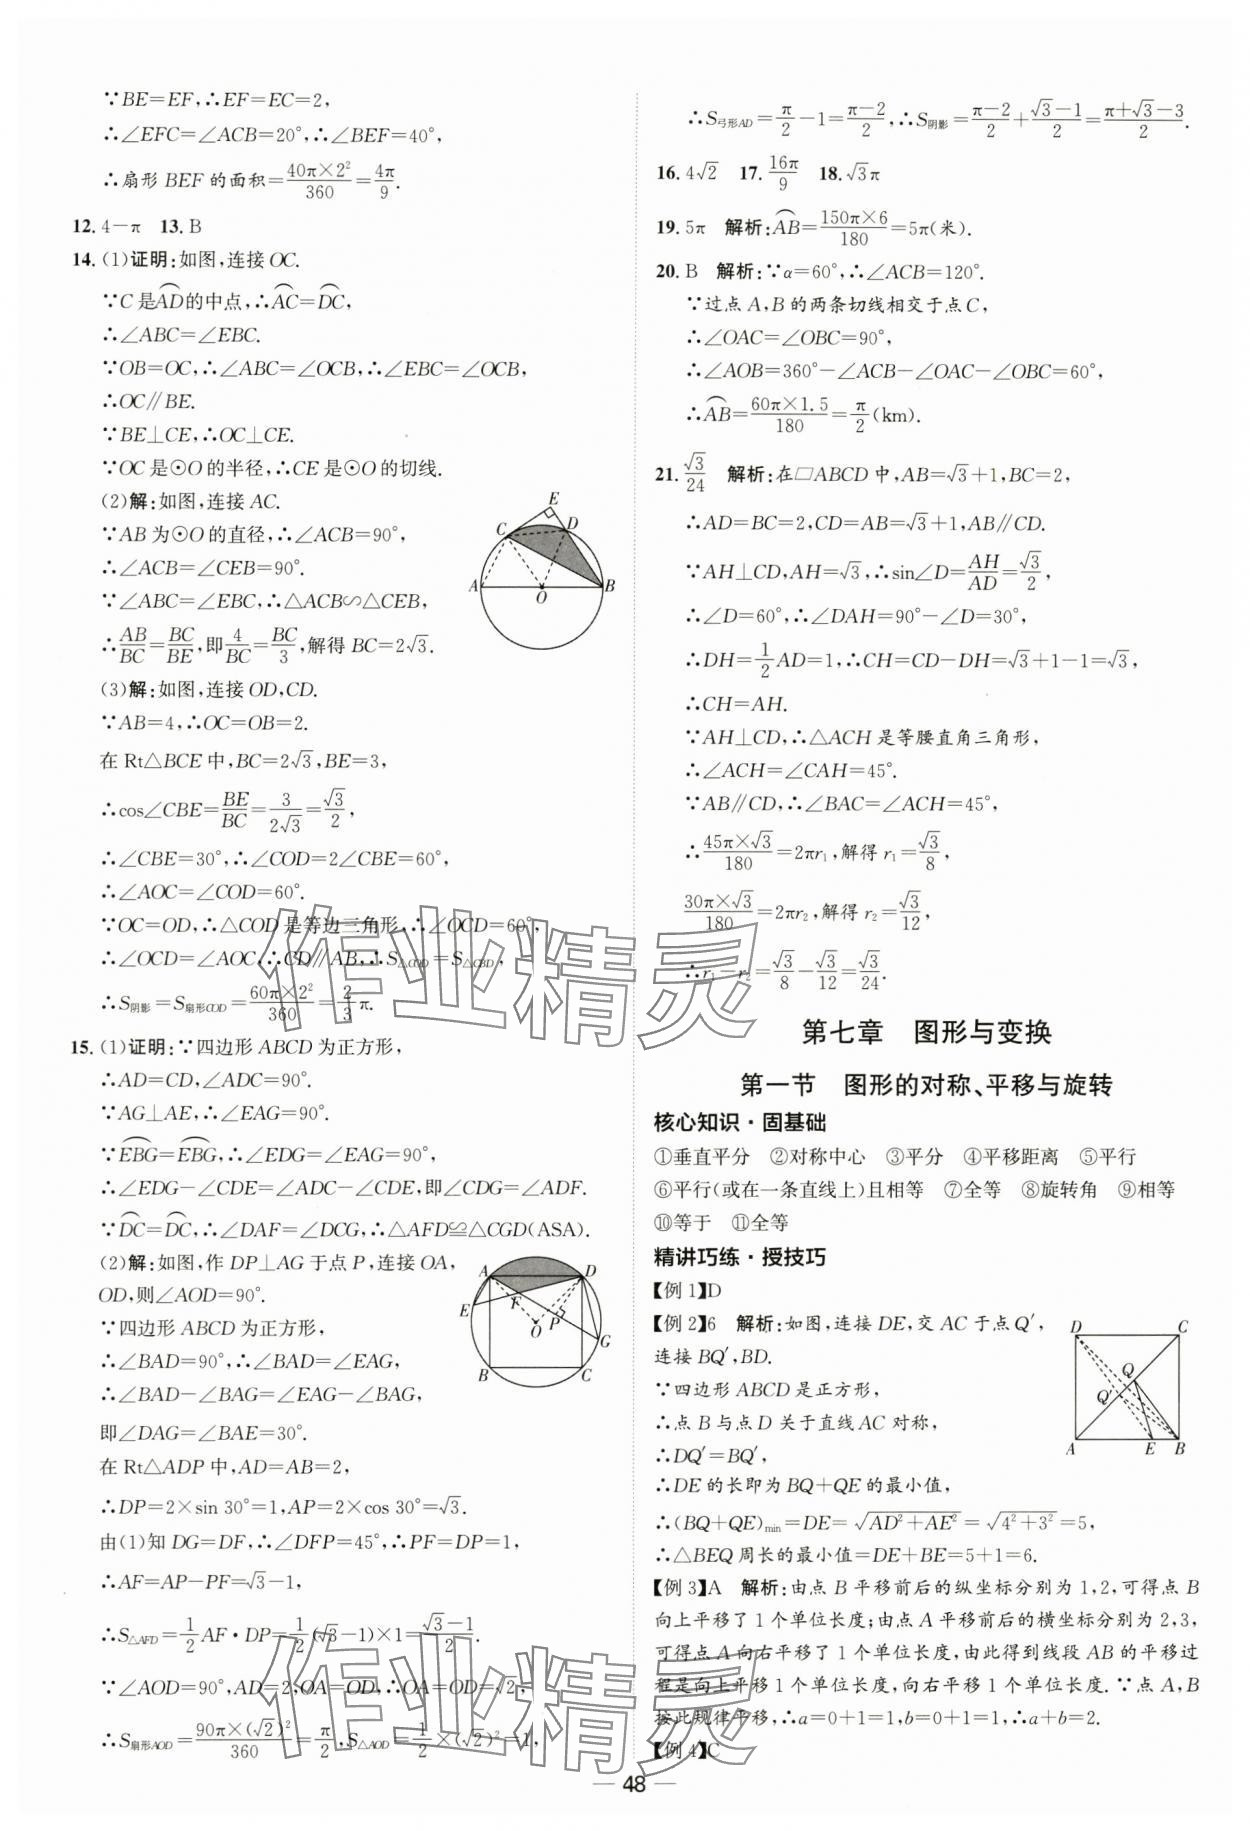 ∵BE=EF,∴EF=EC=2,
∴∠EFC=∠ACB=20°,∴∠BEF=40°,
∴扇形 BEF 的面积=40π×2²/360=4π/9.
12. 4-π  13. B
14. (1)证明:如图,连接 OC.
∵C 是⌒AD的中点,∴⌒AC=⌒DC,
∴∠ABC=∠EBC.
∵OB=OC,∴∠ABC=∠OCB,∴∠EBC=∠OCB,
∴OC∥BE.
∵BE⊥CE,∴OC⊥CE.
∵OC 是⊙O 的半径,∴CE 是⊙O 的切线.
(2)解:如图,连接 AC.
∵AB 为⊙O 的直径,∴∠ACB=90°,
∴∠ACB=∠CEB=90°.
∵∠ABC=∠EBC,∴△ACB∽△CEB,
∴AB/BC=BC/BE,即4/BC=BC/3,解得 BC=2√3.
(3)解:如图,连接 OD,CD.
∵AB=4,∴OC=OB=2.
在 Rt△BCE 中,BC=2√3,BE=3,
∴cos∠CBE=BE/BC=3/(2√3)=√3/2,
∴∠CBE=30°,∴∠COD=2∠CBE=60°,
∴∠AOC=∠COD=60°.
∵OC=OD,∴△COD 是等边三角形,∴∠OCD=60°,
∴∠OCD=∠AOC,∴CD∥AB,∴S△COD=S△CBD,
∴S阴影=S扇形COD=60π×2²/360=2/3π.
E
C
D
A
O
B
15. (1)证明:∵四边形 ABCD 为正方形,
∴AD=CD,∠ADC=90°.
∵AG⊥AE,∴∠EAG=90°.
∵⌒EBG=⌒EBG,∴∠EDG=∠EAG=90°,
∴∠EDG-∠CDE=∠ADC-∠CDE,即∠CDG=∠ADF.
∵⌒DC=⌒DC,∴∠DAF=∠DCG,∴△AFD≌△CGD(ASA).
(2)解:如图,作 DP⊥AG 于点 P,连接 OA,
OD,则∠AOD=90°.
∵四边形 ABCD 为正方形,
∴∠BAD=90°,∴∠BAD=∠EAG,
∴∠BAD-∠BAG=∠EAG-∠BAG,
即∠DAG=∠BAE=30°.
在 Rt△ADP 中,AD=AB=2,
∴DP=2×sin 30°=1,AP=2×cos 30°=√3.
由(1)知 DG=DF,∴∠DFP=45°,∴PF=DP=1,
∴AF=AP-PF=√3-1,
∴S△AFD=1/2AF·DP=1/2(√3-1)×1=(√3-1)/2.
∵∠AOD=90°,AD=2,OA=OD,∴OA=OD=√2,
∴S扇形AOD=90π×(√2)²/360=π/2,S△AOD=1/2×(√2)²=1,
A
D
E
F
P
O
G
B
C
∴S弓形AD=π/2-1=(π-2)/2,∴S阴影=(π-2)/2+(√3-1)/2=(π+√3-3)/2.
16. 4√2  17. 16π/9  18. √3π
19. 5π  解析:⌒AB=150π×6/180=5π(米).
20. B  解析:∵α=60°,∴∠ACB=120°.
∵过点 A,B 的两条切线相交于点 C,
∴∠OAC=∠OBC=90°,
∴∠AOB=360°-∠ACB-∠OAC-∠OBC=60°,
∴⌒AB=60π×1.5/180=π/2(km).
21. √3/24  解析:在▱ABCD 中,AB=√3+1,BC=2,
∴AD=BC=2,CD=AB=√3+1,AB∥CD.
∵AH⊥CD,AH=√3,∴sin∠D=AH/AD=√3/2,
∴∠D=60°,∴∠DAH=90°-∠D=30°,
∴DH=1/2AD=1,∴CH=CD-DH=√3+1-1=√3,
∴CH=AH.
∵AH⊥CD,∴△ACH 是等腰直角三角形,
∴∠ACH=∠CAH=45°.
∵AB∥CD,∴∠BAC=∠ACH=45°,
∴45π×√3/180=2πr₁,解得 r₁=√3/8,
30π×√3/180=2πr₂,解得 r₂=√3/12,
∴r₁-r₂=√3/8-√3/12=√3/24.
第七章 图形与变换
第一节 图形的对称、平移与旋转
核心知识·固基础
①垂直平分 ②对称中心 ③平分 ④平移距离 ⑤平行
⑥平行(或在一条直线上)且相等 ⑦全等 ⑧旋转角 ⑨相等
⑩等于 ⑪全等
精讲巧练·授技巧
【例 1】D
【例 2】6  解析:如图,连接 DE,交 AC 于点 Q′,
连接 BQ′,BD.
∵四边形 ABCD 是正方形,
∴点 B 与点 D 关于直线 AC 对称,
∴DQ′=BQ′,
∴DE 的长即为 BQ+QE 的最小值,
∴(BQ+QE)min=DE=√(AD²+AE²)=√(4²+3²)=5,
∴△BEQ 周长的最小值=DE+BE=5+1=6.
D
C
Q
Q′
A
E
B
【例 3】A  解析:由点 B 平移前后的纵坐标分别为 1,2,可得点 B
向上平移了 1 个单位长度;由点 A 平移前后的横坐标分别为 2,3,
可得点 A 向右平移了 1 个单位长度,由此得到线段 AB 的平移过
程是向上平移 1 个单位长度,向右平移 1 个单位长度.∵点 A,B
按此规律平移,∴a=0+1=1,b=0+1=1,∴a+b=2.
【例 4】C
48
作业精灵
作业精灵